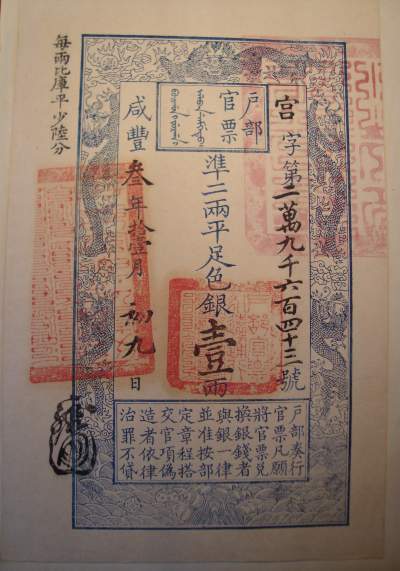 宮字第二萬九千六百四十三號
戶部
官票
準二兩平足色銀壹兩
咸豐叁年拾壹月初九日
每兩比庫平少陸分
戶部奏行
官票凡願
將官票兌
換銀錢者
與銀一律
並准按部
定章程搭
交官項偽
造者依律
治罪不貸